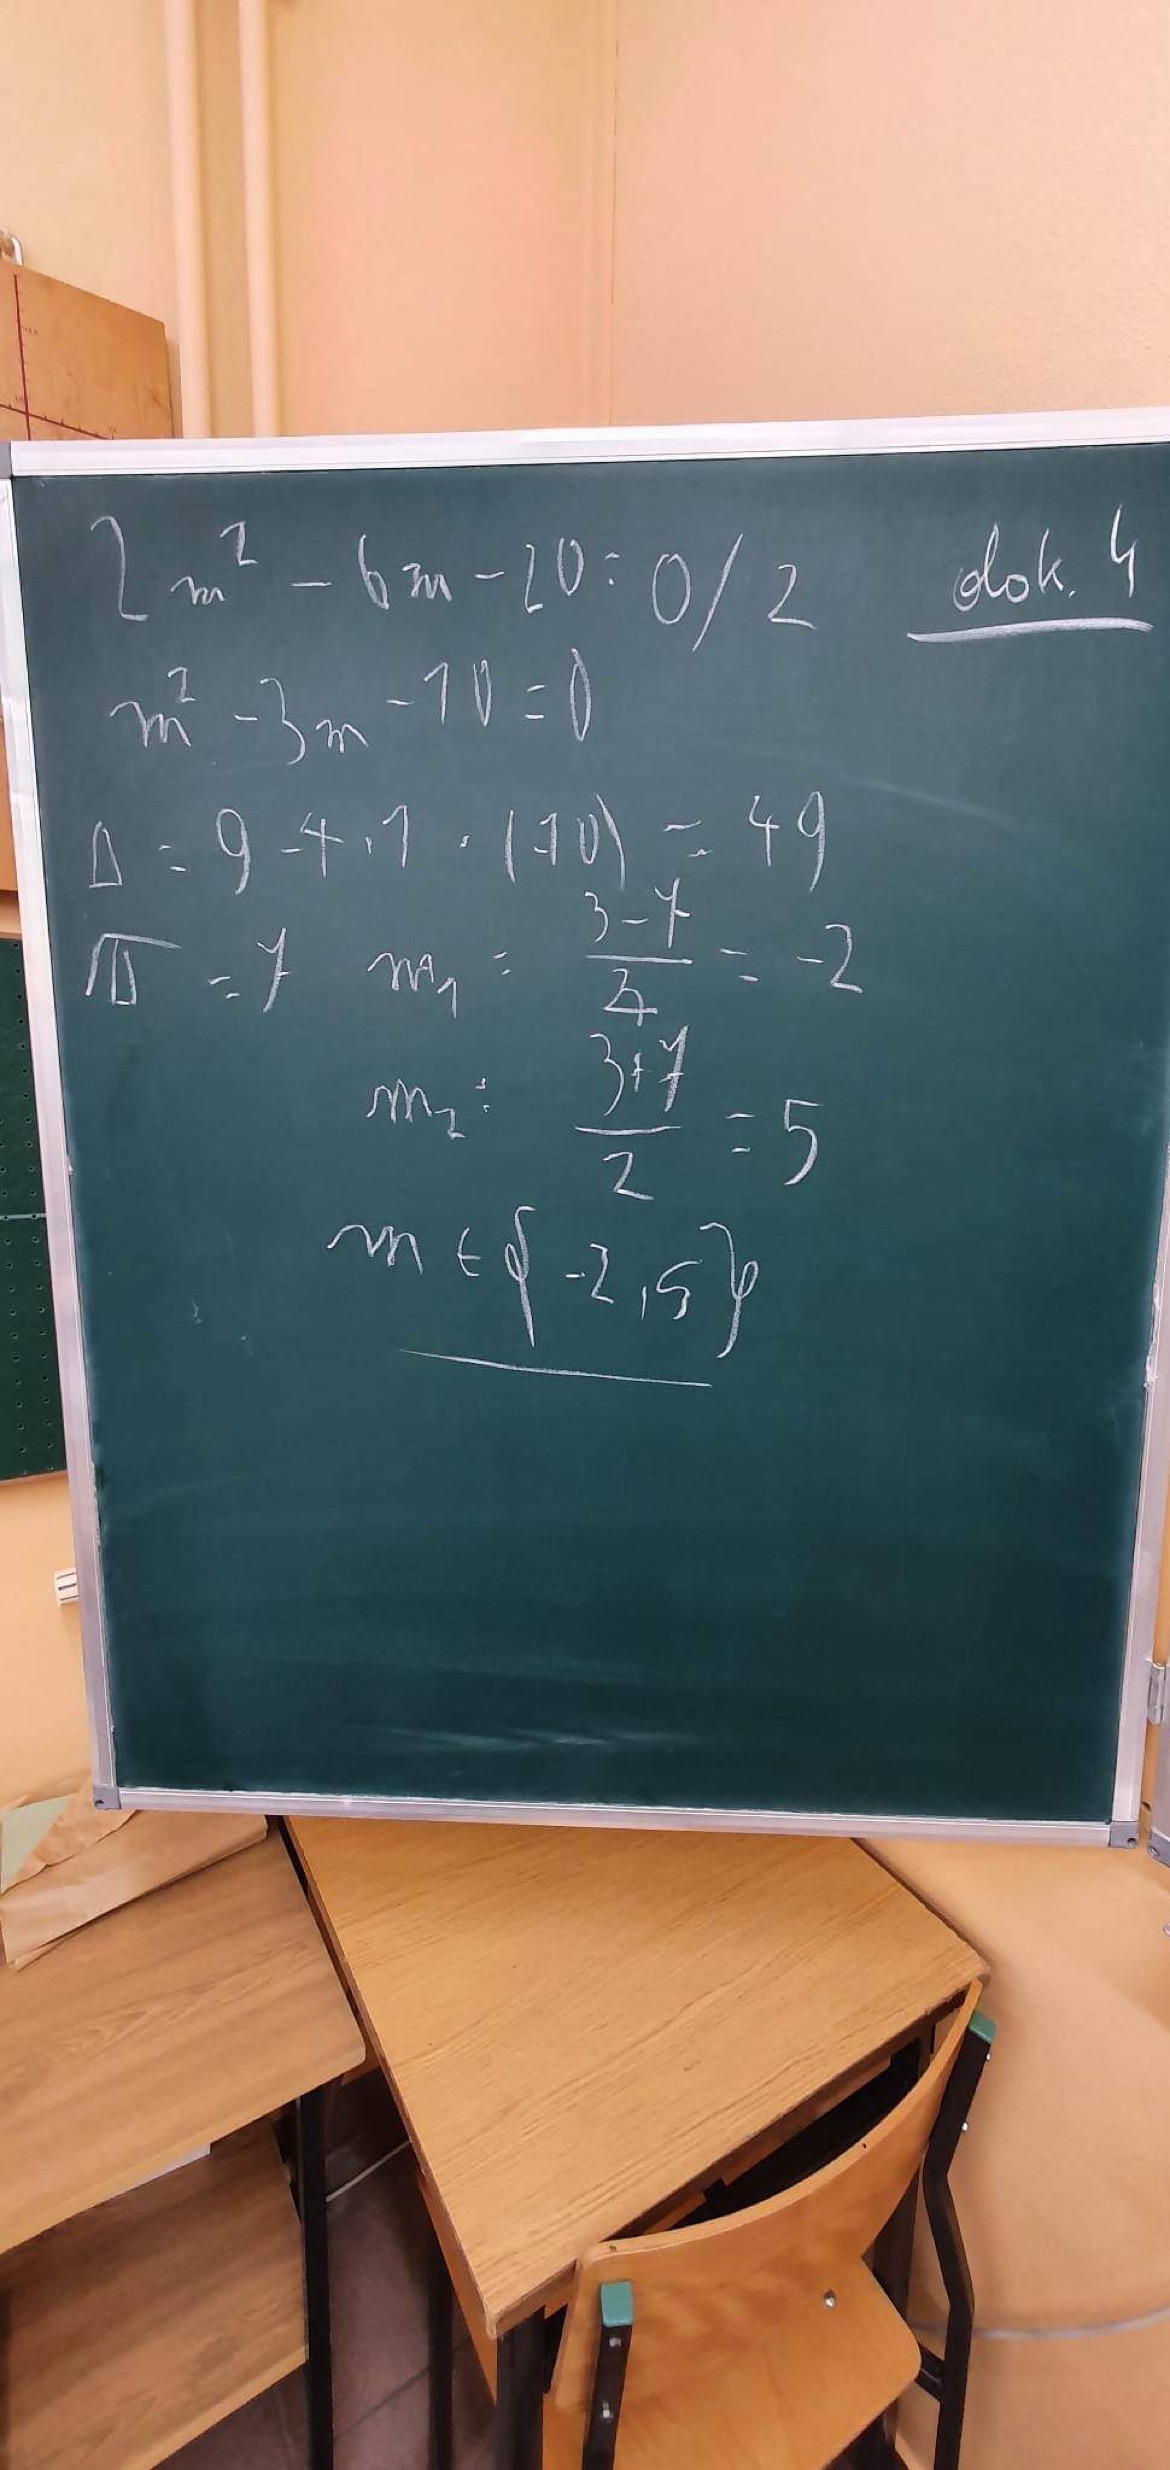 2m² - 6m - 20 = 0 / 2
dok. 4
m² - 3m - 10 = 0
Δ = 9 - 4 · 1 · (-10) = 49
√Δ = 7 m₁ = (3-7)/2 = -2
m₂ = (3+7)/2 = 5
m ∈ {-2, 5}